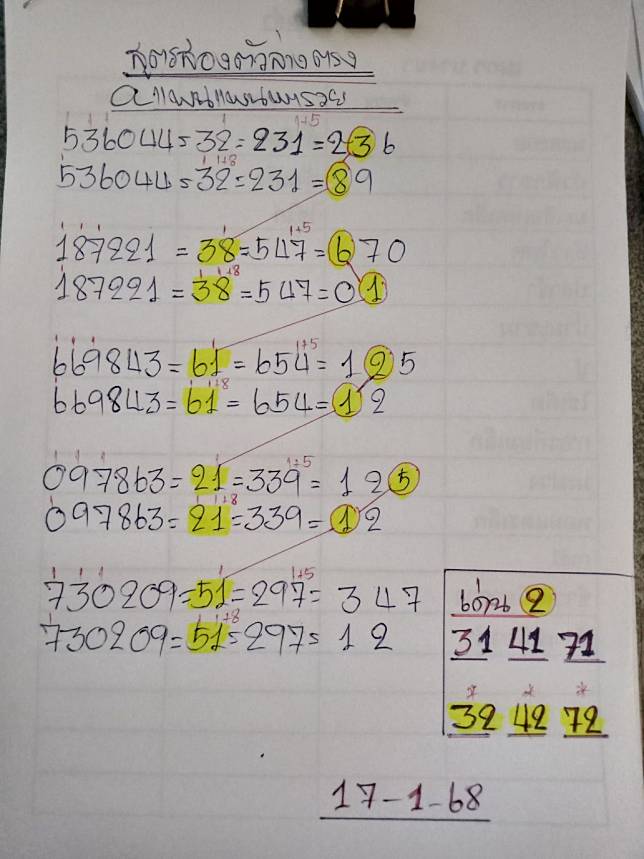 สูตรสองตัวล่างตรง
536044=32=231=236
1+5
536044=32=231=89
1 1+8
187221=38=547=670
1+5
187221=38=547=01
1 1+8
669843=61=654=125
1+5
669843=61=654=12
1 1+8
097863=21=339=125
1+5
097863=21=339=12
1 1+8
730209=51=297=347
1+5
730209=51=297=12
1 1+8
เด่น 2
31 41 71
* * *
32 42 72
17-1-68